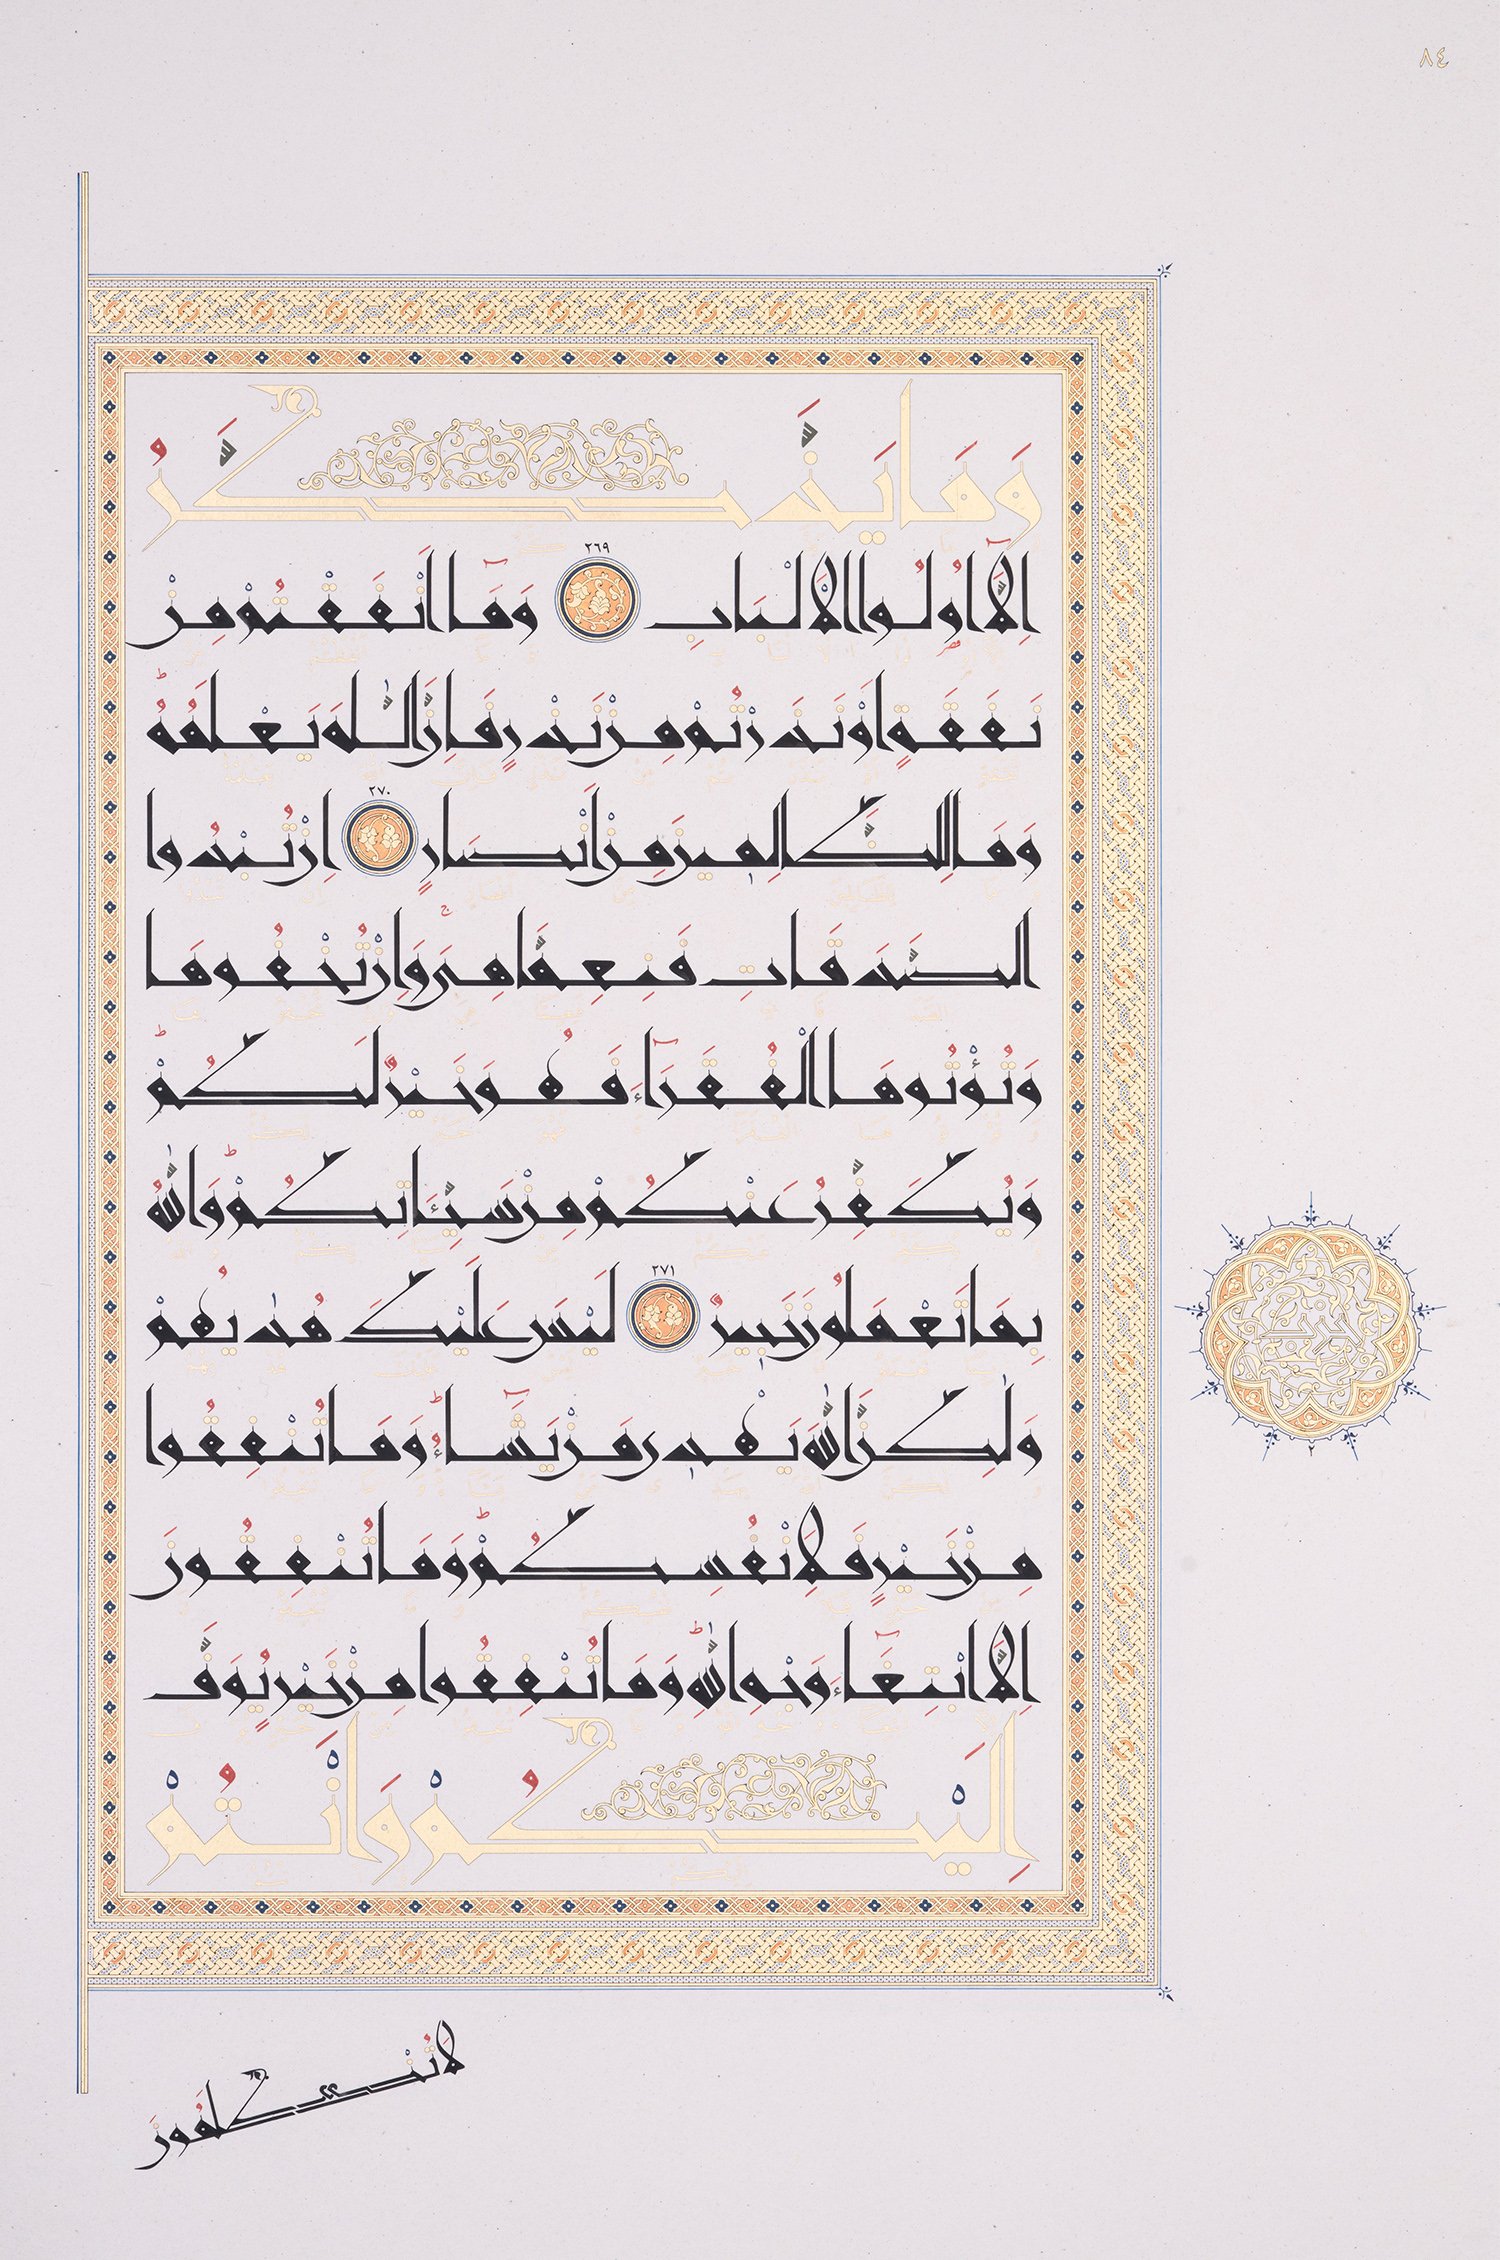 ٨٤
وَمَا يَذَّكَّرُ
اِلَّآ اُولُوا الْاَلْبَابِ ٢٦٩ وَمَآ اَنْفَقْتُمْ مِنْ
نَفَقَةٍ اَوْ نَذَرْتُمْ مِنْ نَذْرٍ فَاِنَّ اللّٰهَ يَعْلَمُهُ ط
وَمَا لِلظَّالِمِينَ مِنْ اَنْصَارٍ ٢٧٠ اِنْ تُبْدُوا
الصَّدَقَاتِ فَنِعِمَّا هِيَ ج وَاِنْ تُخْفُوهَا
وَتُؤْتُوهَا الْفُقَرَآءَ فَهُوَ خَيْرٌ لَكُمْ ط
وَيُكَفِّرُ عَنْكُمْ مِنْ سَيِّئَاتِكُمْ ط وَاللّٰهُ
بِمَا تَعْمَلُونَ خَبِيرٌ ٢٧١ لَيْسَ عَلَيْكَ هُدٰيهُمْ
وَلٰكِنَّ اللّٰهَ يَهْدِي مَنْ يَشَآءُ ط وَمَا تُنْفِقُوا
مِنْ خَيْرٍ فَلِاَنْفُسِكُمْ ط وَمَا تُنْفِقُونَ
اِلَّا ابْتِغَآءَ وَجْهِ اللّٰهِ ط وَمَا تُنْفِقُوا مِنْ خَيْرٍ يُوَفَّ
اِلَيْكُمْ وَاَنْتُمْ
لَا تُظْلَمُونَ